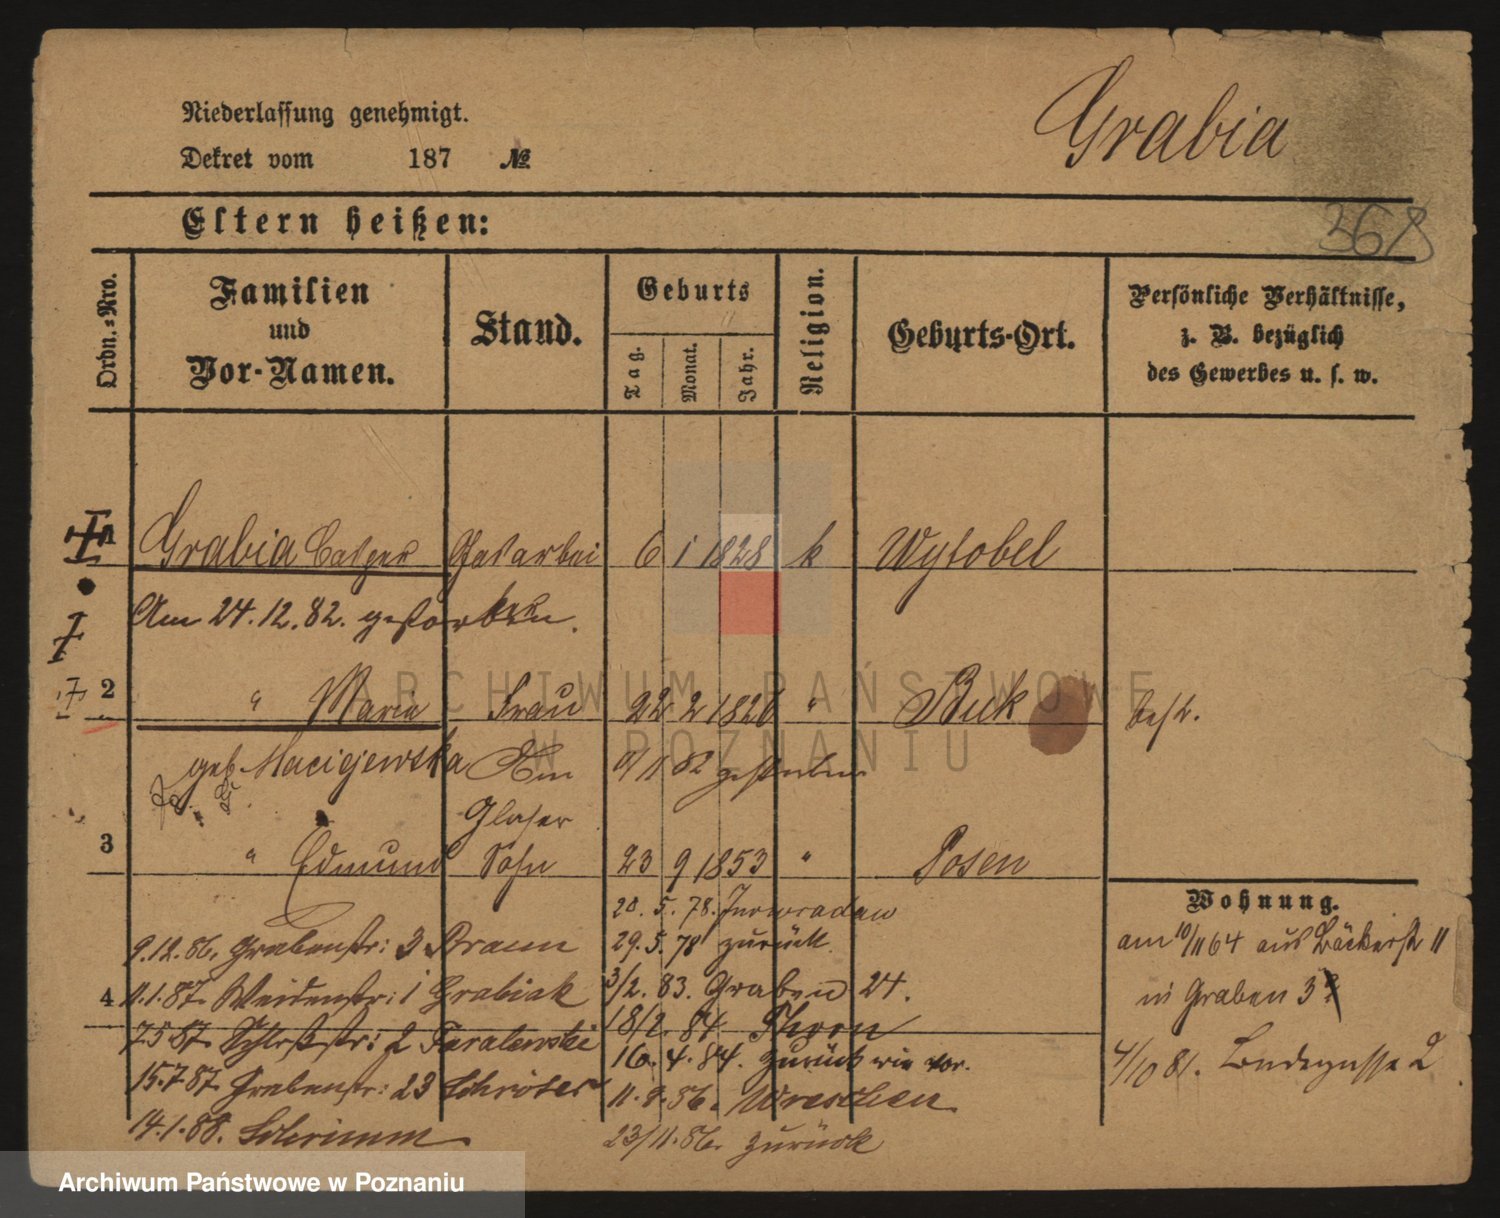 Niederlassung genehmigt.
Grabia
Dekret vom 187 №
Eltern heißen:
368
Ordn.=Nro.
Familien und Vor-Namen.
Stand.
Geburts
Tag.
Monat.
Jahr.
Religion.
Geburts-Ort.
Persönliche Verhältnisse, z. B. bezüglich des Gewerbes u. s. w.
1 Grabia Casper Gasarbei 6 1 1828 k Wytobel
Am 24.12.82. gestorben.
2 " Maria Frau 22 2 1826 " Buk
geb. Macigewska Am 9/11 82 gestorben
Glaser
3 " Edmund Sohn 23 9 1853 " Posen
Wohnung.
20. 5. 78. Inowradaw
9.12.86. Grabenstr: 3 Braun
29. 5. 78 zurück
am 10/11 64 aus Bäckerst 11
4 11.1.87. Weidenstr: 1 Grabiak
3/2. 83. Graben 24.
in Graben 3
7.5.87. Schloßstr: 2 Faralewski
18/2. 84 Thorn
16. 4. 84. zurück wie vor.
4/10 81. Bndegasse 2
15.7.87. Grabenstr: 23 Schröter
11. 9. 86. Wreschen
14.1.88. Schrimm
23/11. 86. zurück
ARCHIWUM PAŃSTWOWE
W POZNANIU
Archiwum Państwowe w Poznaniu